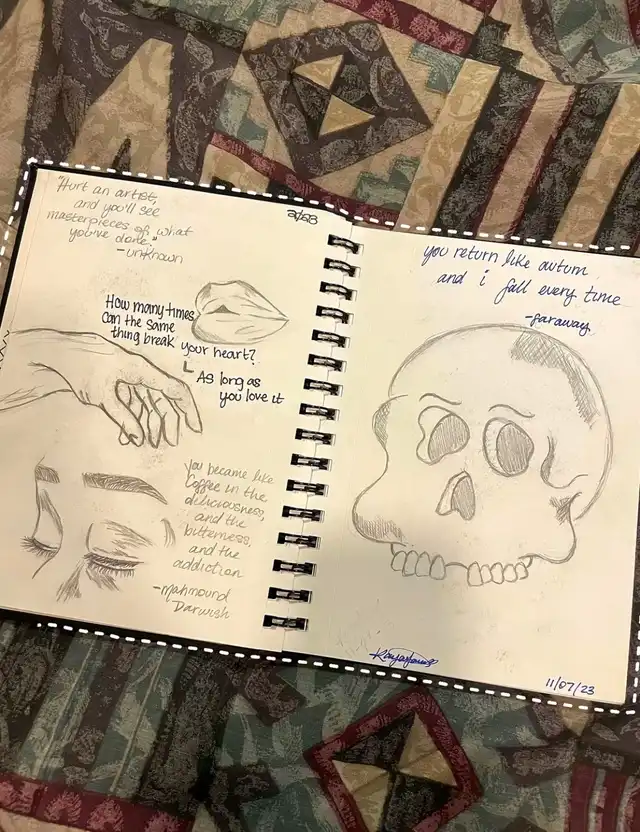 "Hurt an artist,
and you'll see
masterpieces of what
you've done."
-unknown
How many times
can the same
thing break your heart?
As long as
you love it
you became like
Coffee in the
deliciousness,
and the
bitterness,
and the
addiction
-Mahmound
Darwish
you return like autumn
and i fall every time
-faraway
11/07/23